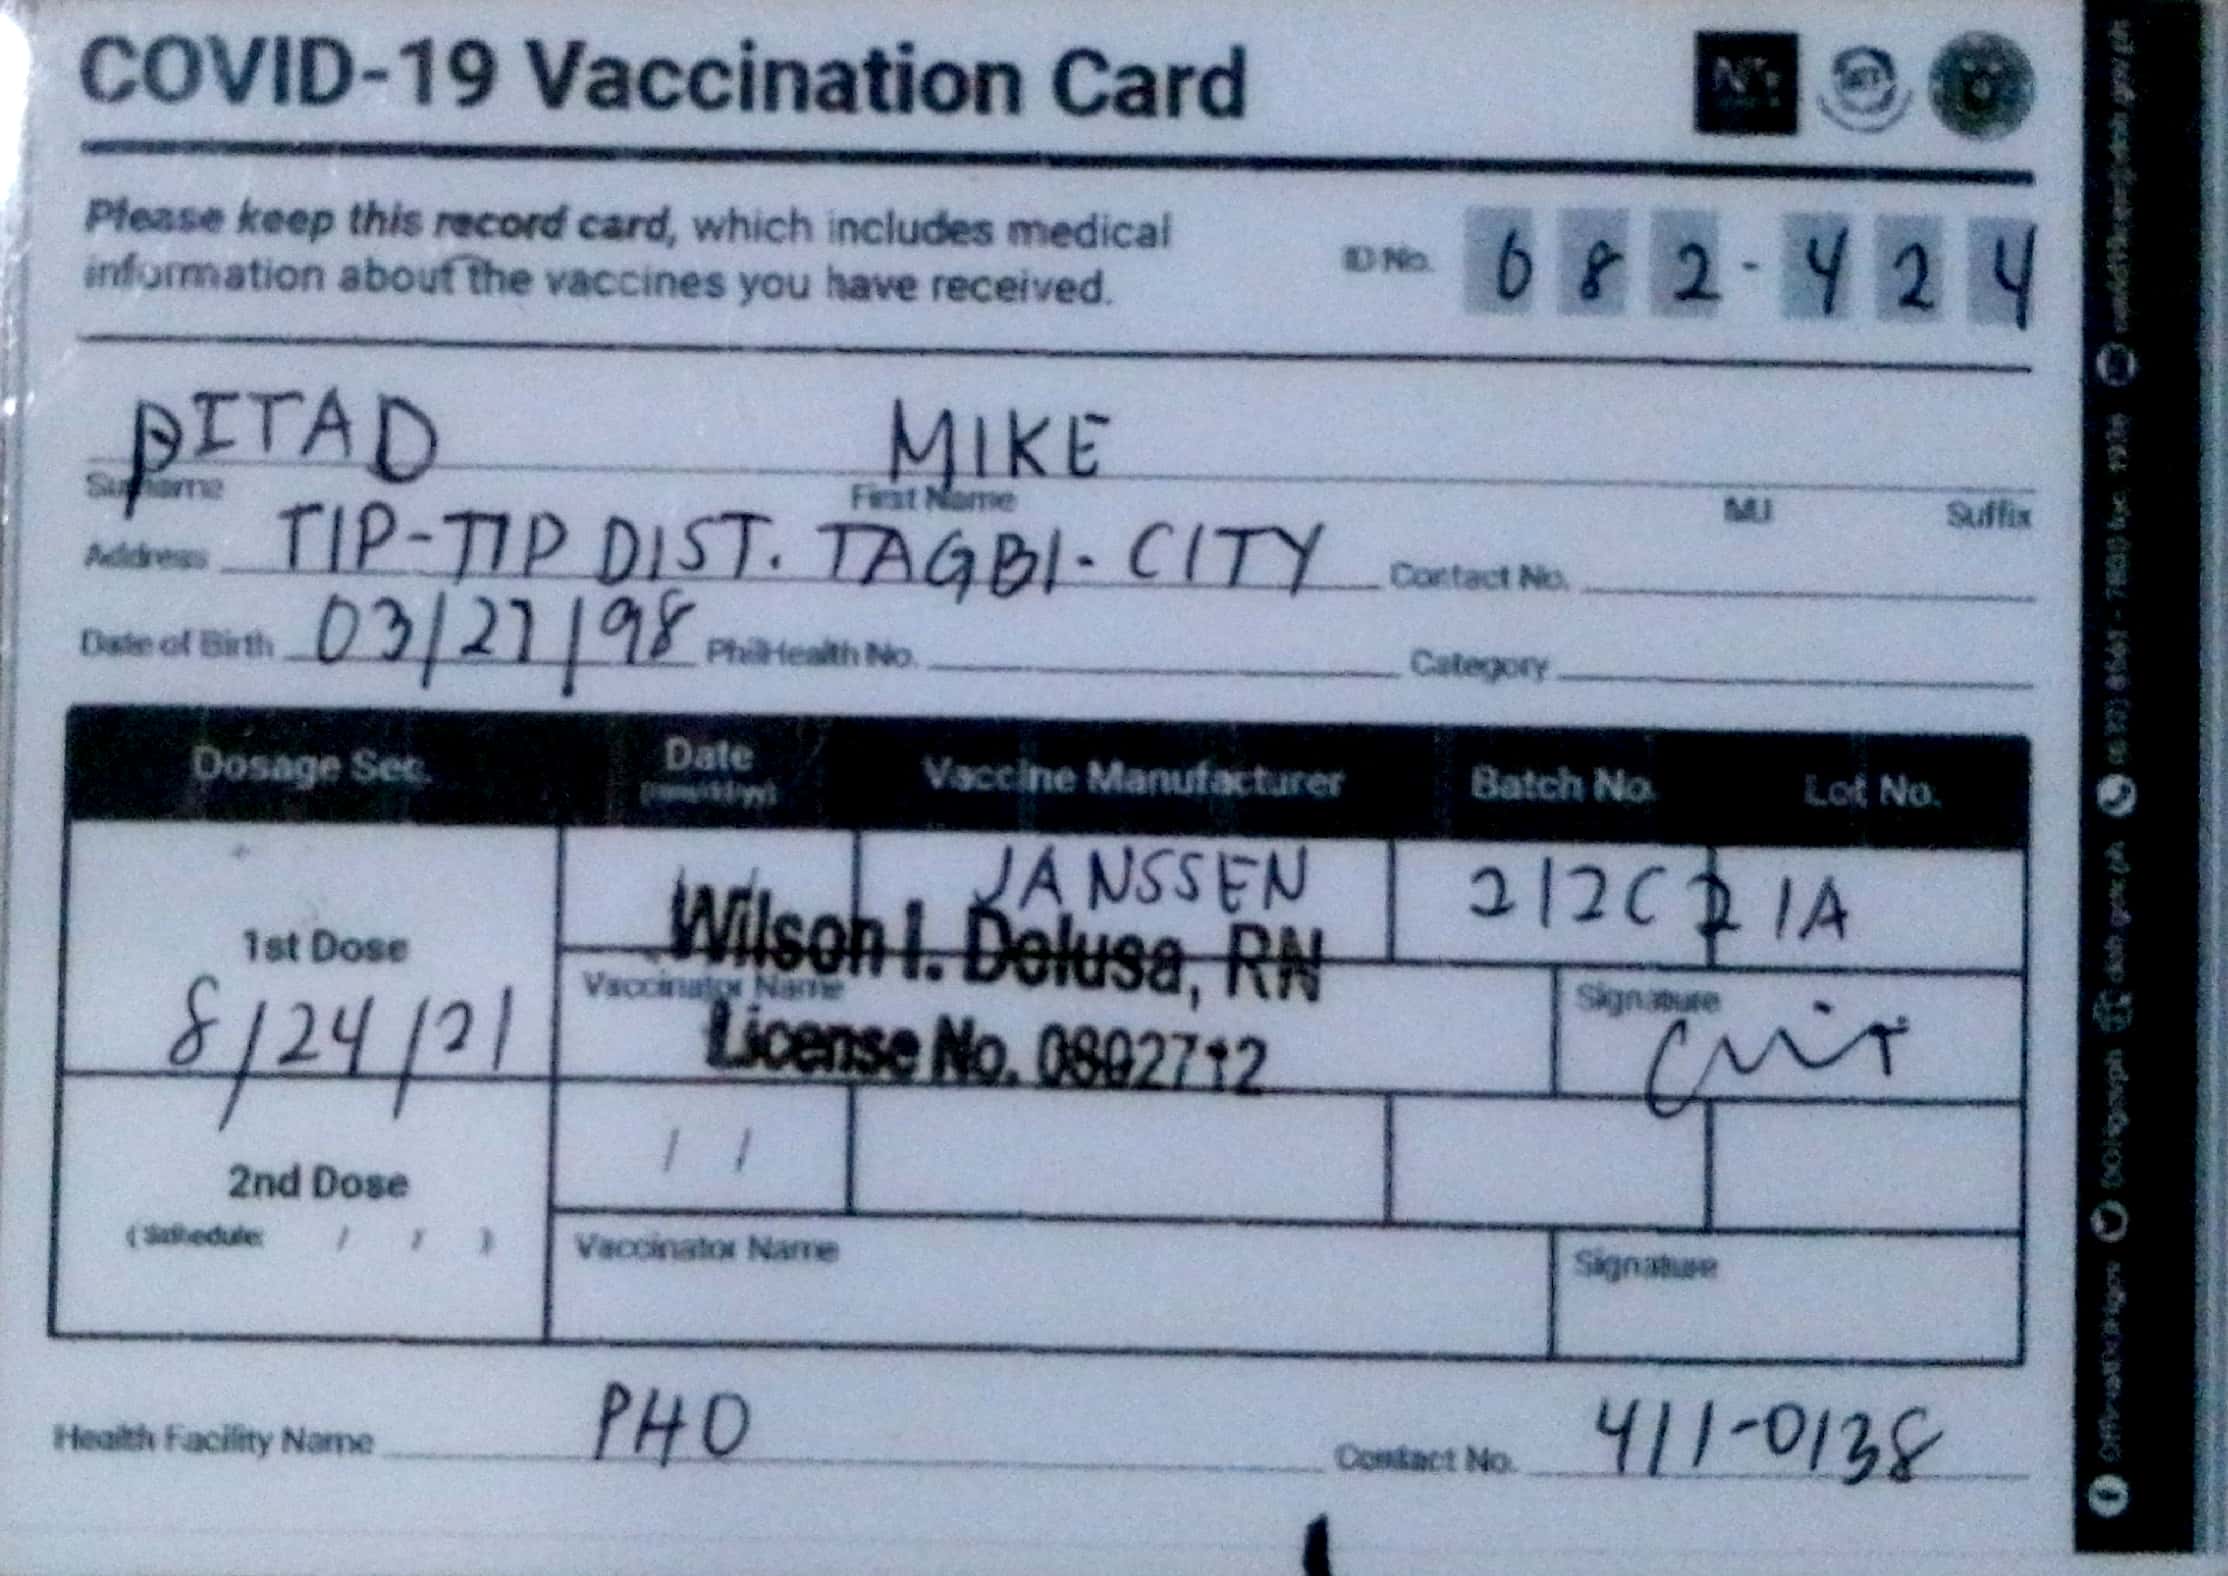 COVID-19 Vaccination Card
Please keep this record card, which includes medical
information about the vaccines you have received.
ID No. 682-424
PITAD MIKE
Surname First Name M.I Suffix
Address TIP-TIP DIST. TAGBI. CITY Contact No.
Date of Birth 03/27/98 PhilHealth No. Category
Dosage Sec. Date Vaccine Manufacturer Batch No. Lot No.
(mm/dd/yy)
1st Dose
8/24/21
JANSSEN 212C21A
Wilson I. Delusa, RN
Vaccinator Name Signature
License No. 0802712
2nd Dose
(Schedule: / / )
/ /
Vaccinator Name Signature
Health Facility Name PHO Contact No. 411-0138